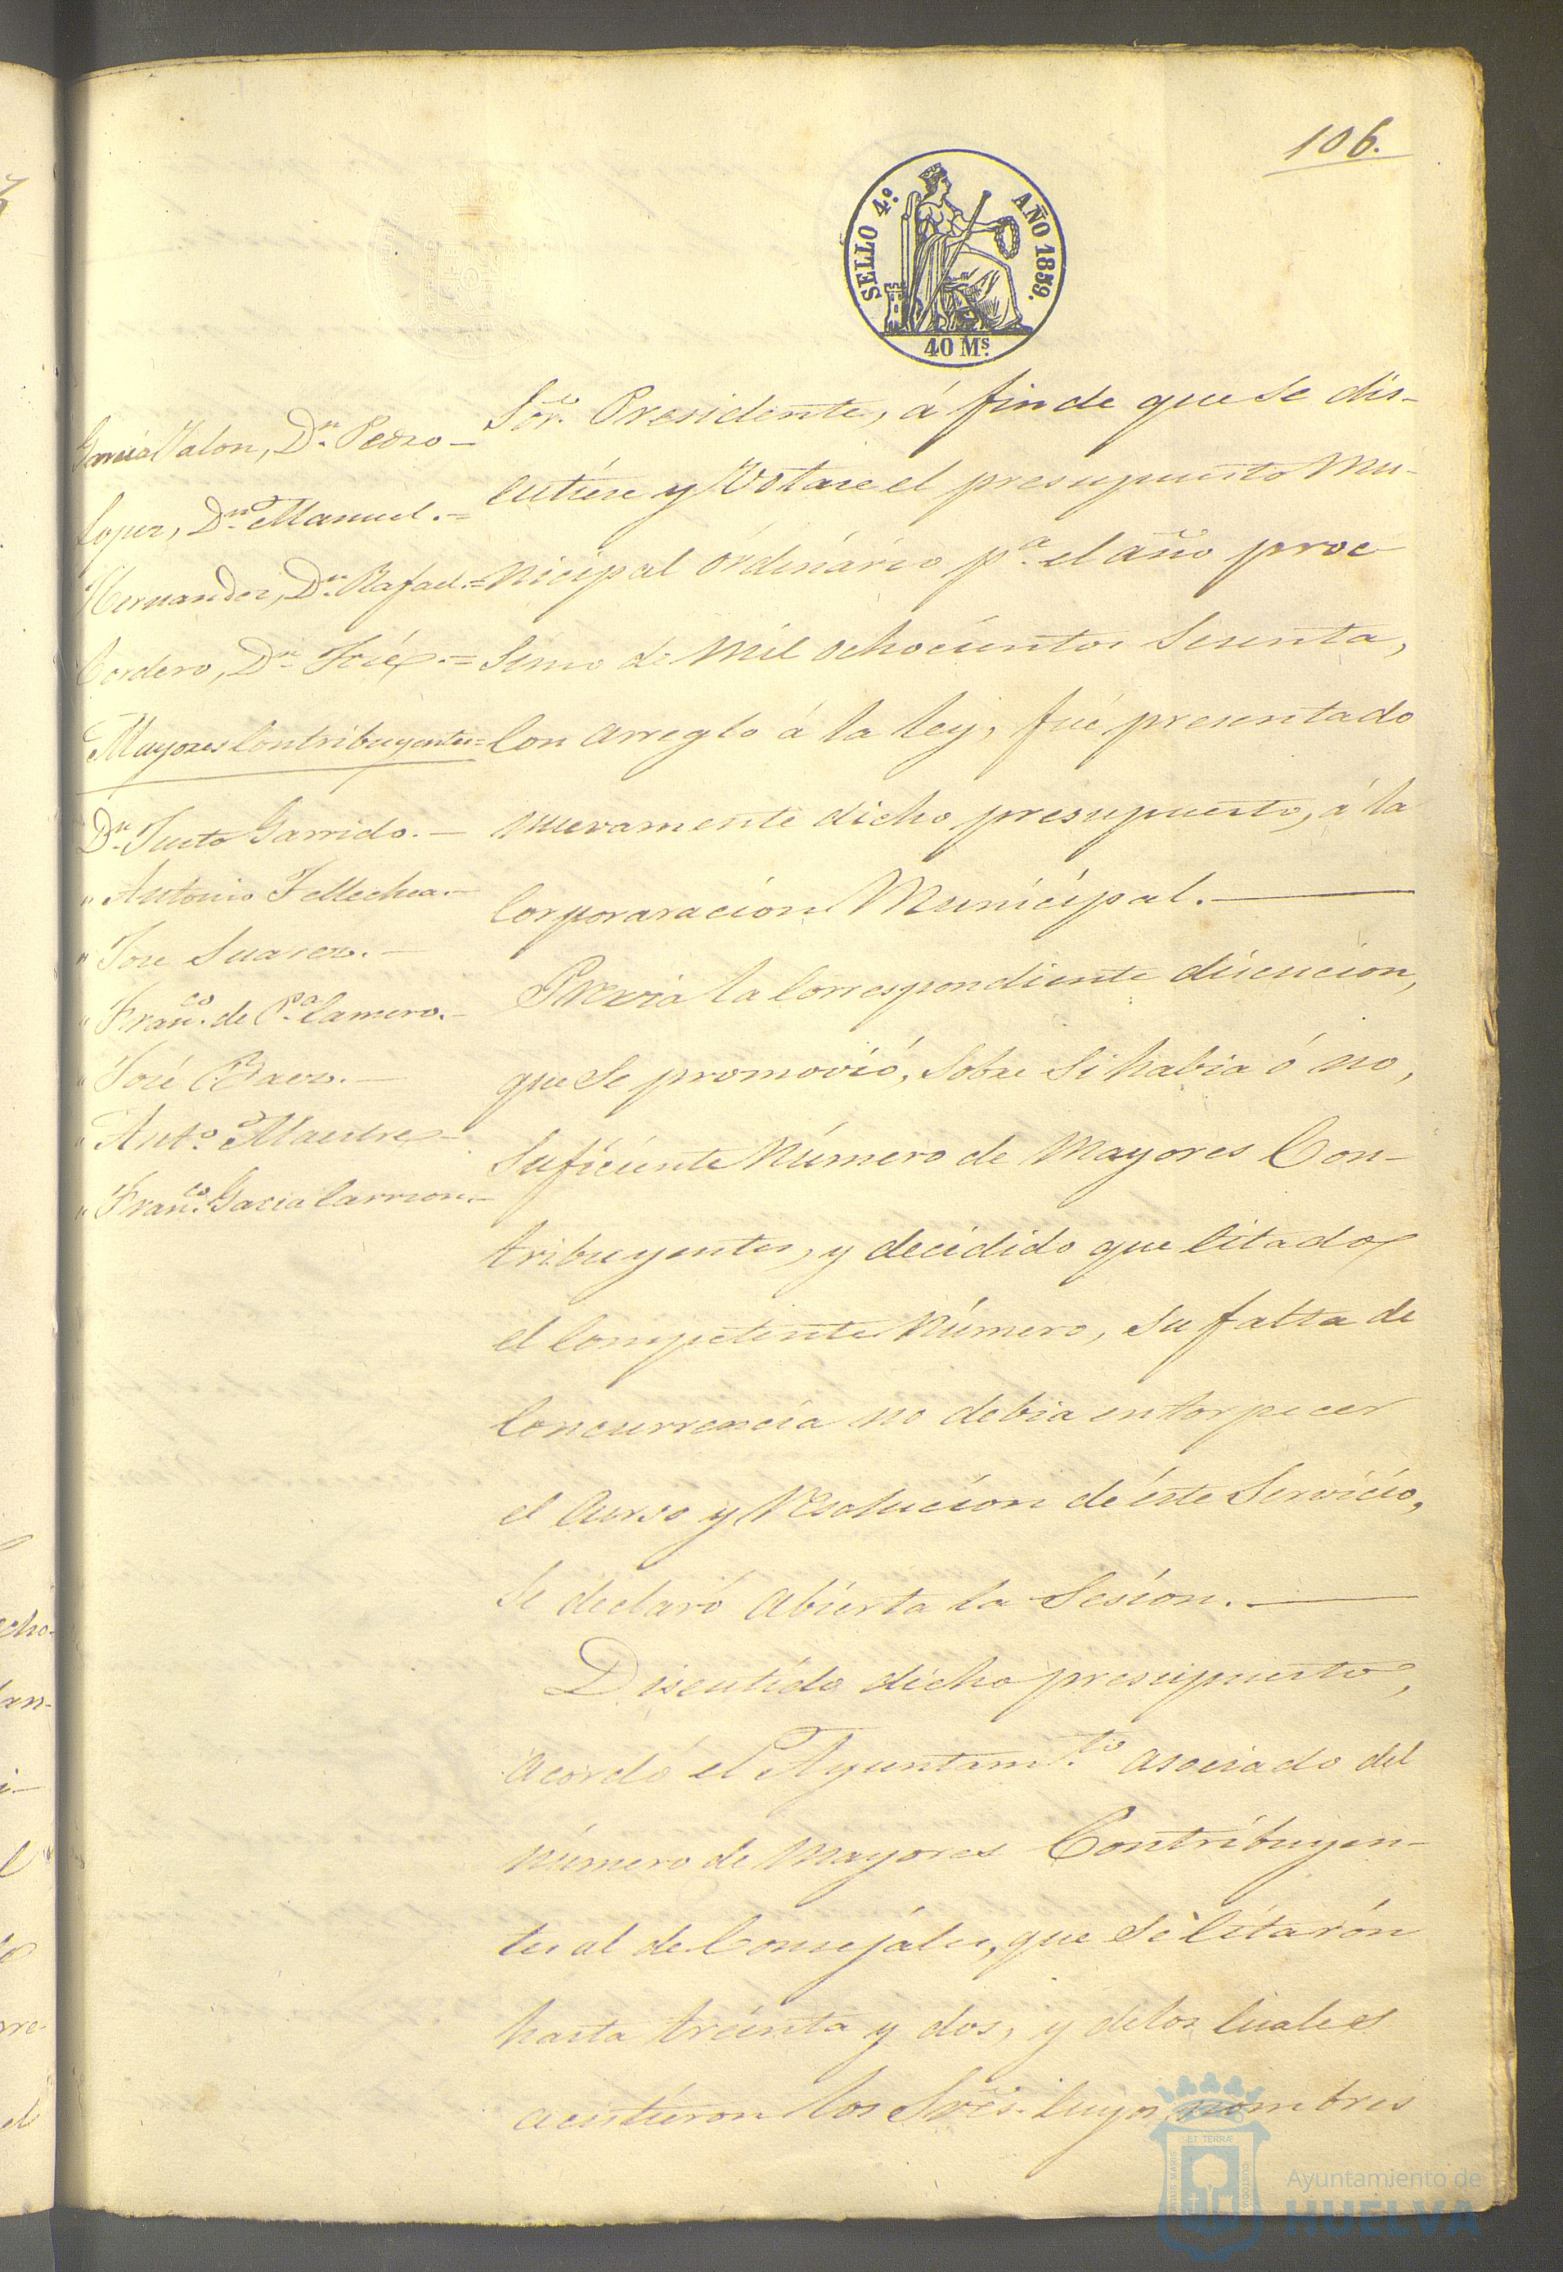 106.
SELLO 4.º AÑO 1859.
40 Ms.
Garcia Jalon, Dn. Pedro —
Lopez, Dn. Manuel. =
Hernandez, Dn. Rafael. =
Cordero, Dn. José. =
Mayores Contribuyentes =
Dn. Justo Garrido. —
" Antonio Tellechea. —
" Jose Suarez. —
" Franco. de Pa. Camero. —
" José Baez. —
" Anto. Maestre —
" Franco. Gacia Carrion. —
Sor. Presidente, á fin de que se dis-
cutiese y Votase el presupuesto Mu-
nicipal órdinário pa. el año proc
simo de Mil ochocientos Sesenta,
Con arreglo á la ley, fué presentado
nuevamente dicho presupuesto, á la
Corporaracion Municipal. —
Previa la Correspondiente discucion,
que se promovió, Sobre Si habia ó no,
Suficiente Número de Mayores Con-
tribuyentes, y decidido que Citado
el Competente Número, Su falta de
Concurrencia no debia entorpecer
el Curso y Resolucion de éste Servicio,
Se declaró abierta la Sesion. —
Discutido dicho presupuesto,
acordó el Ayuntamto. asociado del
número de Mayores Contribuyen-
tes al de Consejáles, que Se Citarón
hasta tréinta y dos, y delos Cuales
acistieron los Sres. Cuyos nombres
echo-
ET TERRÆ
Ayuntamiento de
HUELVA